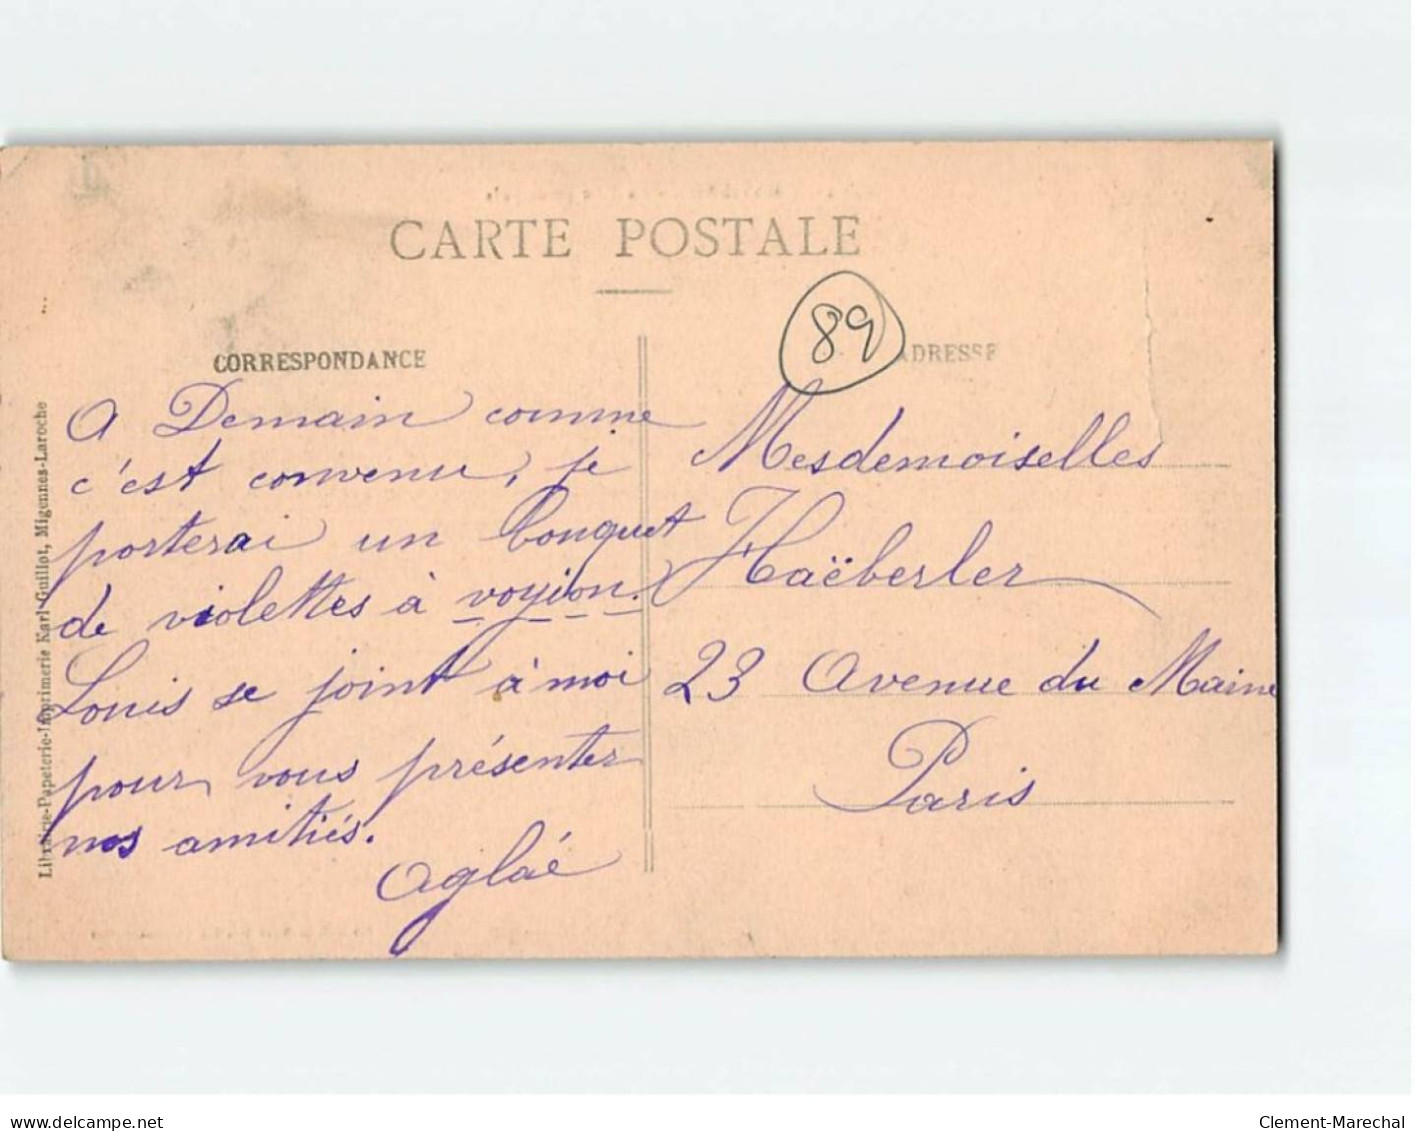 CARTE POSTALE
89
CORRESPONDANCE
ADRESSE
A Demain comme
c'est convenu, je
porterai un bouquet
de violettes à voyion.
Louis se joint à moi
pour vous présenter
nos amitiés.
Aglaé
Mesdemoiselles
Haëberler
23 Avenue du Maine
Paris
Librairie-Papeterie-Imprimerie Karl Guillot, Migennes-Laroche
delcampe.net
Clement-Marechal